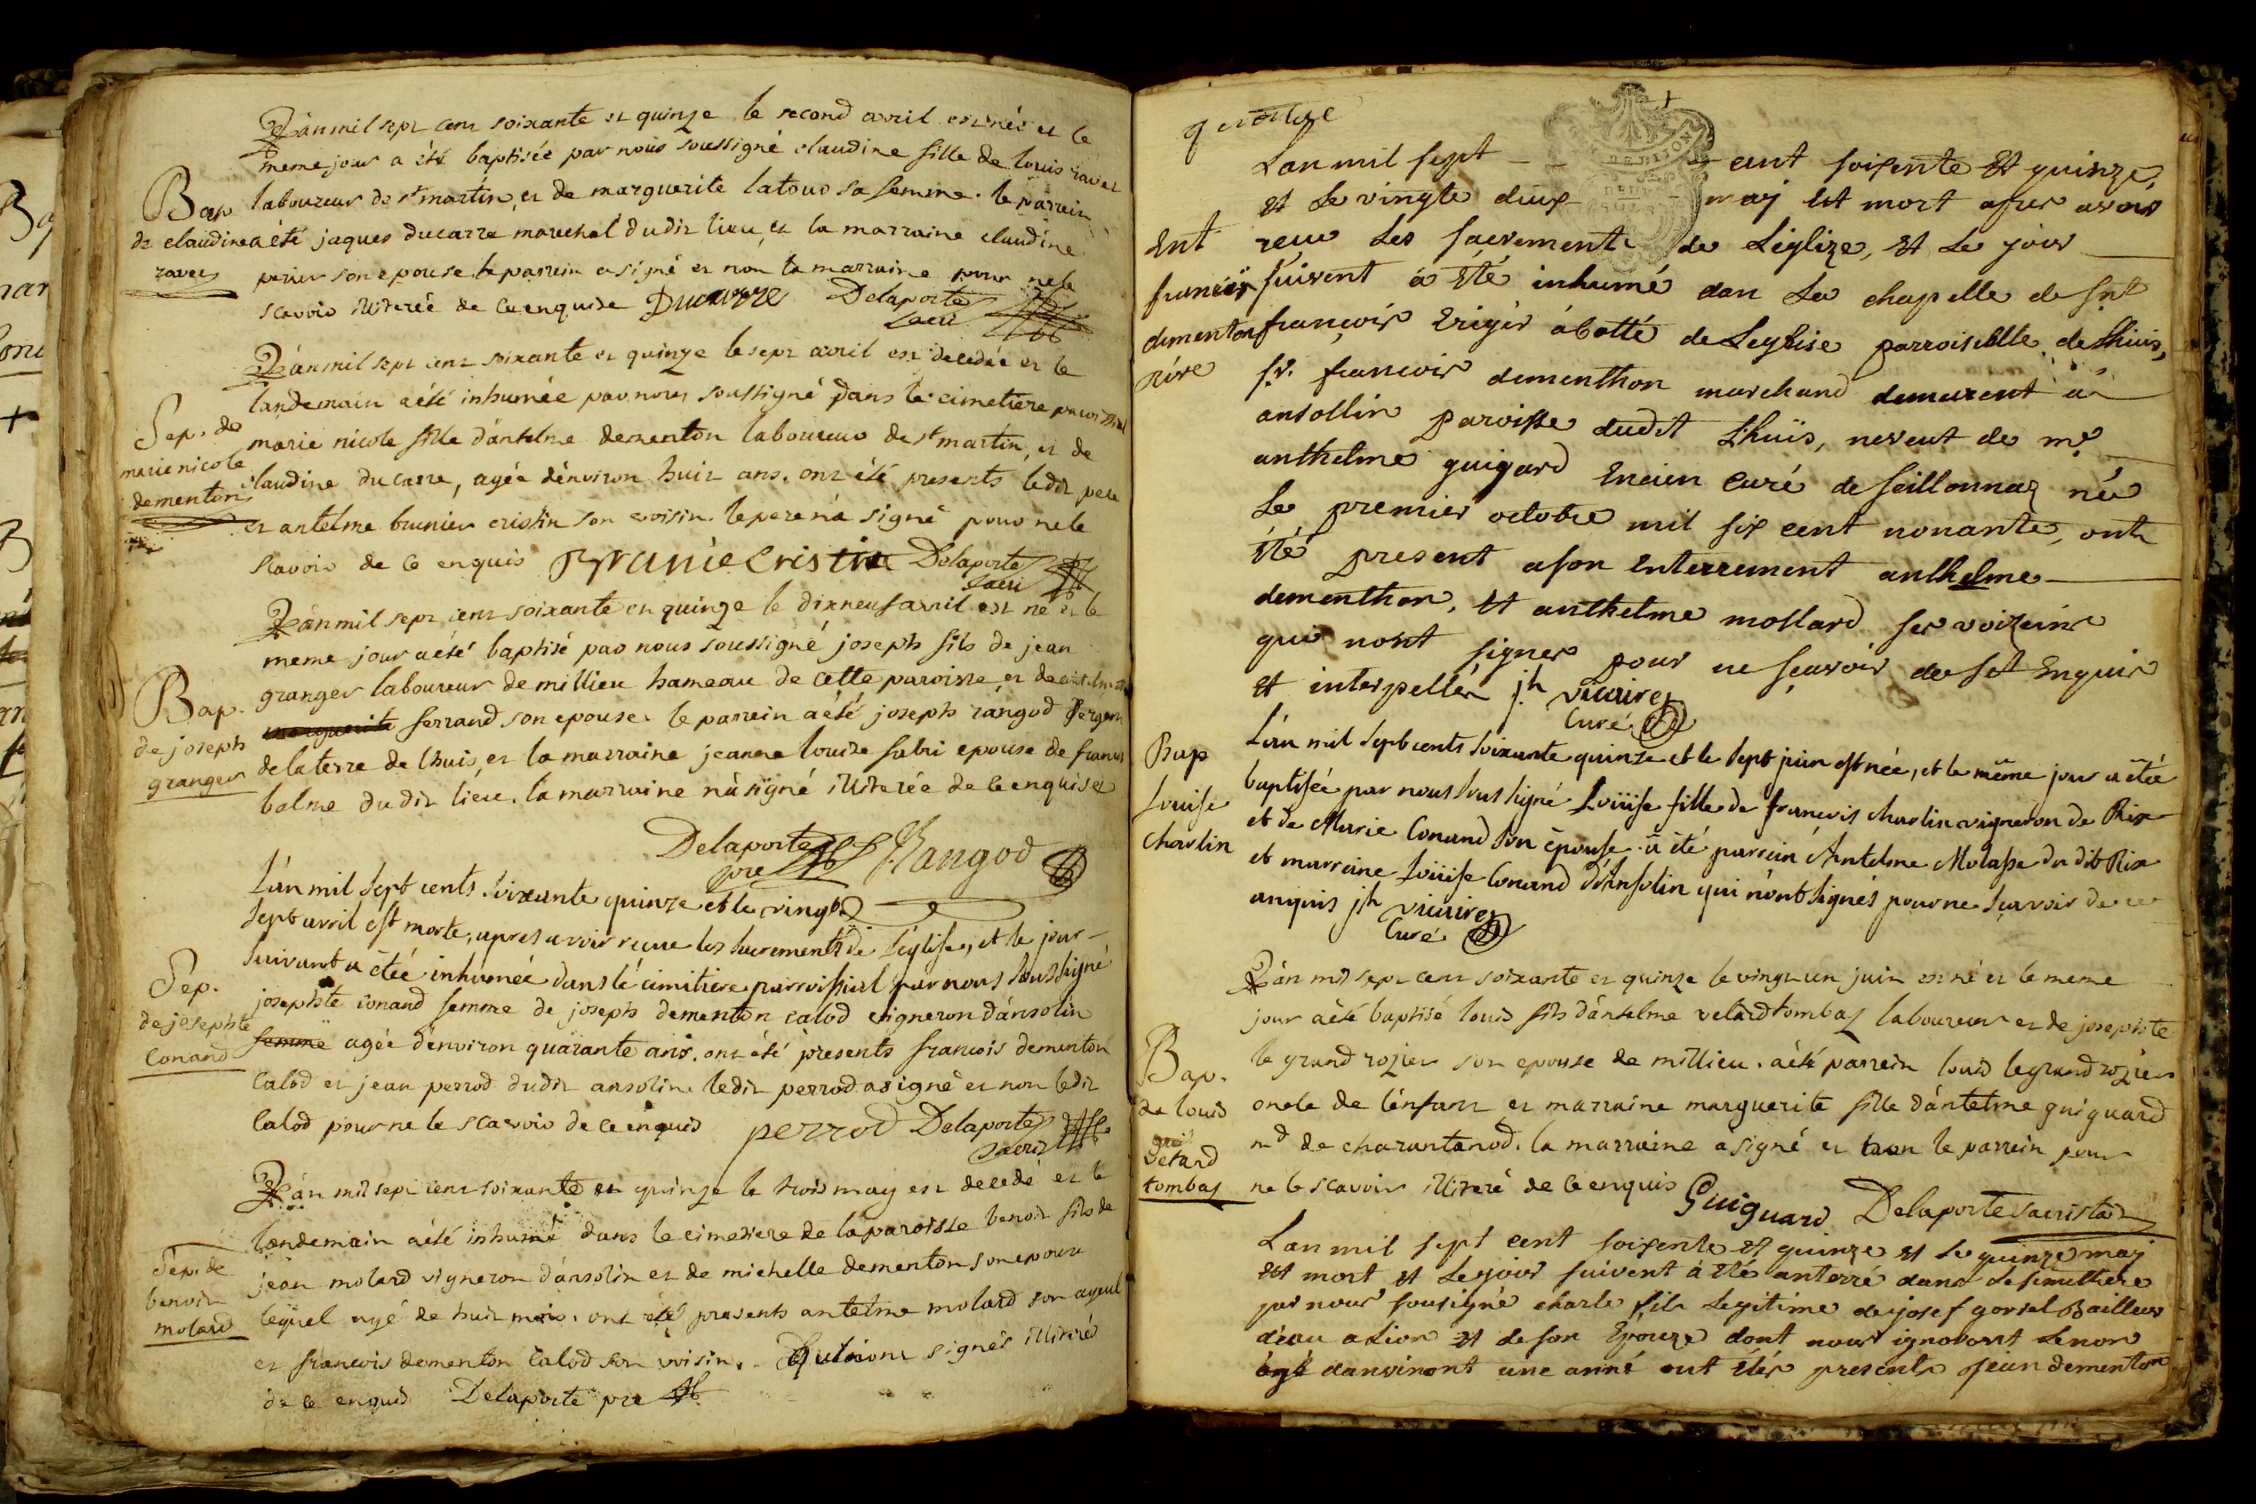 Lán mil sept cent soixante et quinze le second avril est née et le
meme jour a été baptisée par nous soussigné claudine fille de louis ravet
Bap.
de claudine
ravet
laboureur de st martin, et de marguerite latour sa femme. le parrein
a été jaques ducarre marechal dudit lieu, et la marraine claudine
perier son epouse. le parrein a signé et non la marraine pour ne le
scavoir illiterée de ce enquise Ducarre Delaporte
sacri
Lán mil sept cent soixante et quinze le sept avril est decedée et le
landemain a été inhumée par nous soussigné dans le cimetiere paroissial
Sep. de
marie nicole
dementon
marie nicole fille dántelme dementon laboureur de st martin, et de
claudine ducarre, agée dénviron huit ans. ont été presents ledit pere
et antelme brunier cristin son voisin. le pere n'a signé pour ne le
scavoir de ce enquis Brunié Cristin Delaporte
sacri
Lán mil sept cent soixante et quinze le dixneuf avril est né et le
meme jour a été baptisé par nous soussigné joseph fils de jean
Bap.
de joseph
granger
granger laboureur de millieu hameau de cette paroisse et de antelmette
marguerite ferrand son epouse. le parrein a été joseph rangod
de la terre de lhuis, et la marraine jeanne louise fabri epouse de francois
balme du dit lieu. la marraine n'a signé illiterée de ce enquise
Delaporte Rangod
pre
Lán mil sept cents soixante quinze et le vingt
sept avril est morte, apres avoir reçue les sacrements de l'église, et le jour
suivant a étée inhumée dans lé cimitiere parroissial par nous sous signé
Sep.
de jósephte
Conand
josephte conand femme de joseph dementon calod vigneron dánsolin
femme agée dénviron quarante ans. ont été presents francois dementon
calod et jean perrod dudit ansolin. ledit perrod a signé et non ledit
calod pour ne le scavoir de ce enquis perrod Delaporte
sacri
Lán mil sept cent soixante et quinze le trois may est decedé et le
landemain a été inhumé dans le cimetiere de la paroisse benoit fils de
Sep. de
benoit
molard
jean molard vigneron dánsolin et de michelle dementon son epouse
lequel agé de huit mois. ont été presents antelme molard son ayeul
et francois dementon calod son voisin. qui n'ont signés illiterés
de ce enquis Delaporte pre
Lan mil sept cent soixente et quinze,
et le vingte deux may est mort apres avoir
Ent
francois
dementon
pére
reçu les sacrements de L'églize, et le jour
suivent á été inhumé dan la chapelle de snt
françois erigér á cotté de Leglise parroisielle de Lhuis,
sr. françois dementhon marchand demeurent á
ansollin paroisse dudit Lhuis, neveut de mr
anthelme guigard encien curé de seillonnaz née
Le premier octobre mil six cent nonante, ont
été present a son enterrement anthelme
dementhon, et anthelme mollard ses voizeins
qui nont signer pour ne sçavoir de set enquis
et interpellér jh vicaire
Curé
Bap
Louise
charlin
Lán mil sept cents soixante quinze et le sept juin est née, et le même jour a étée
baptisée par nous sous signé Loüise fille de françois charlin vigneron de Rix
et de Marie Conand son épouse. a été parrein Antelme Molasse du dit Rix
et marraine Loüise Conand d'Ansolin qui n'ont signés pour ne sçavoir de ce
anquis jh vicaire
Curé
Lán mil sept cent soixante et quinze le vingt un juin est né et le meme
jour a été baptisé louis fils dántelme velard tombaz laboureur et de josephte
Bap.
de louis
velard
tombaz
le grand rozier son epouse de millieu. a été parrein louis legrand rozier
oncle de lénfant et marraine marguerite fille dántelme guiguard
md de charantanod. la marraine a signé et non le parrein pour
ne le scavoir illiteré de ce enquis Guiguard Delaporte sacristain
Lan mil sept cent soixente et quinze et le quinze may
est mort et le jour suivent á été anterré dans le simettiere
par nous sousigné charle fils legitime de josef gorsel Bailleur
d'eau a Lion et de son Epouze dont nous ignoront Le non
agé danviront une anné ont étér presents jean dementon